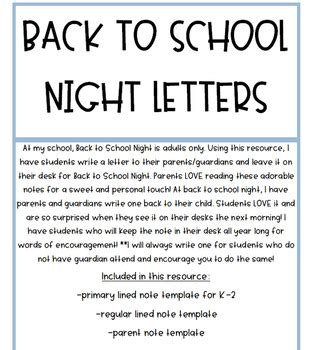 BACK TO SCHOOL
NIGHT LETTERS
At my school, Back to School Night is adults only. Using this resource, I
have students write a letter to their parents/guardians and leave it on
their desk for Back to School Night. Parents LOVE reading these adorable
notes for a sweet and personal touch! At back to school night, I have
parents and guardians write one back to their child. Students LOVE it and
are so surprised when they see it on their desks the next morning! I
have students who will keep the note in their desk all year long for
words of encouragement! **I will always write one for students who do
not have guardian attend and encourage you to do the same!
Included in this resource:
-primary lined note template for K-2
-regular lined note template
-parent note template